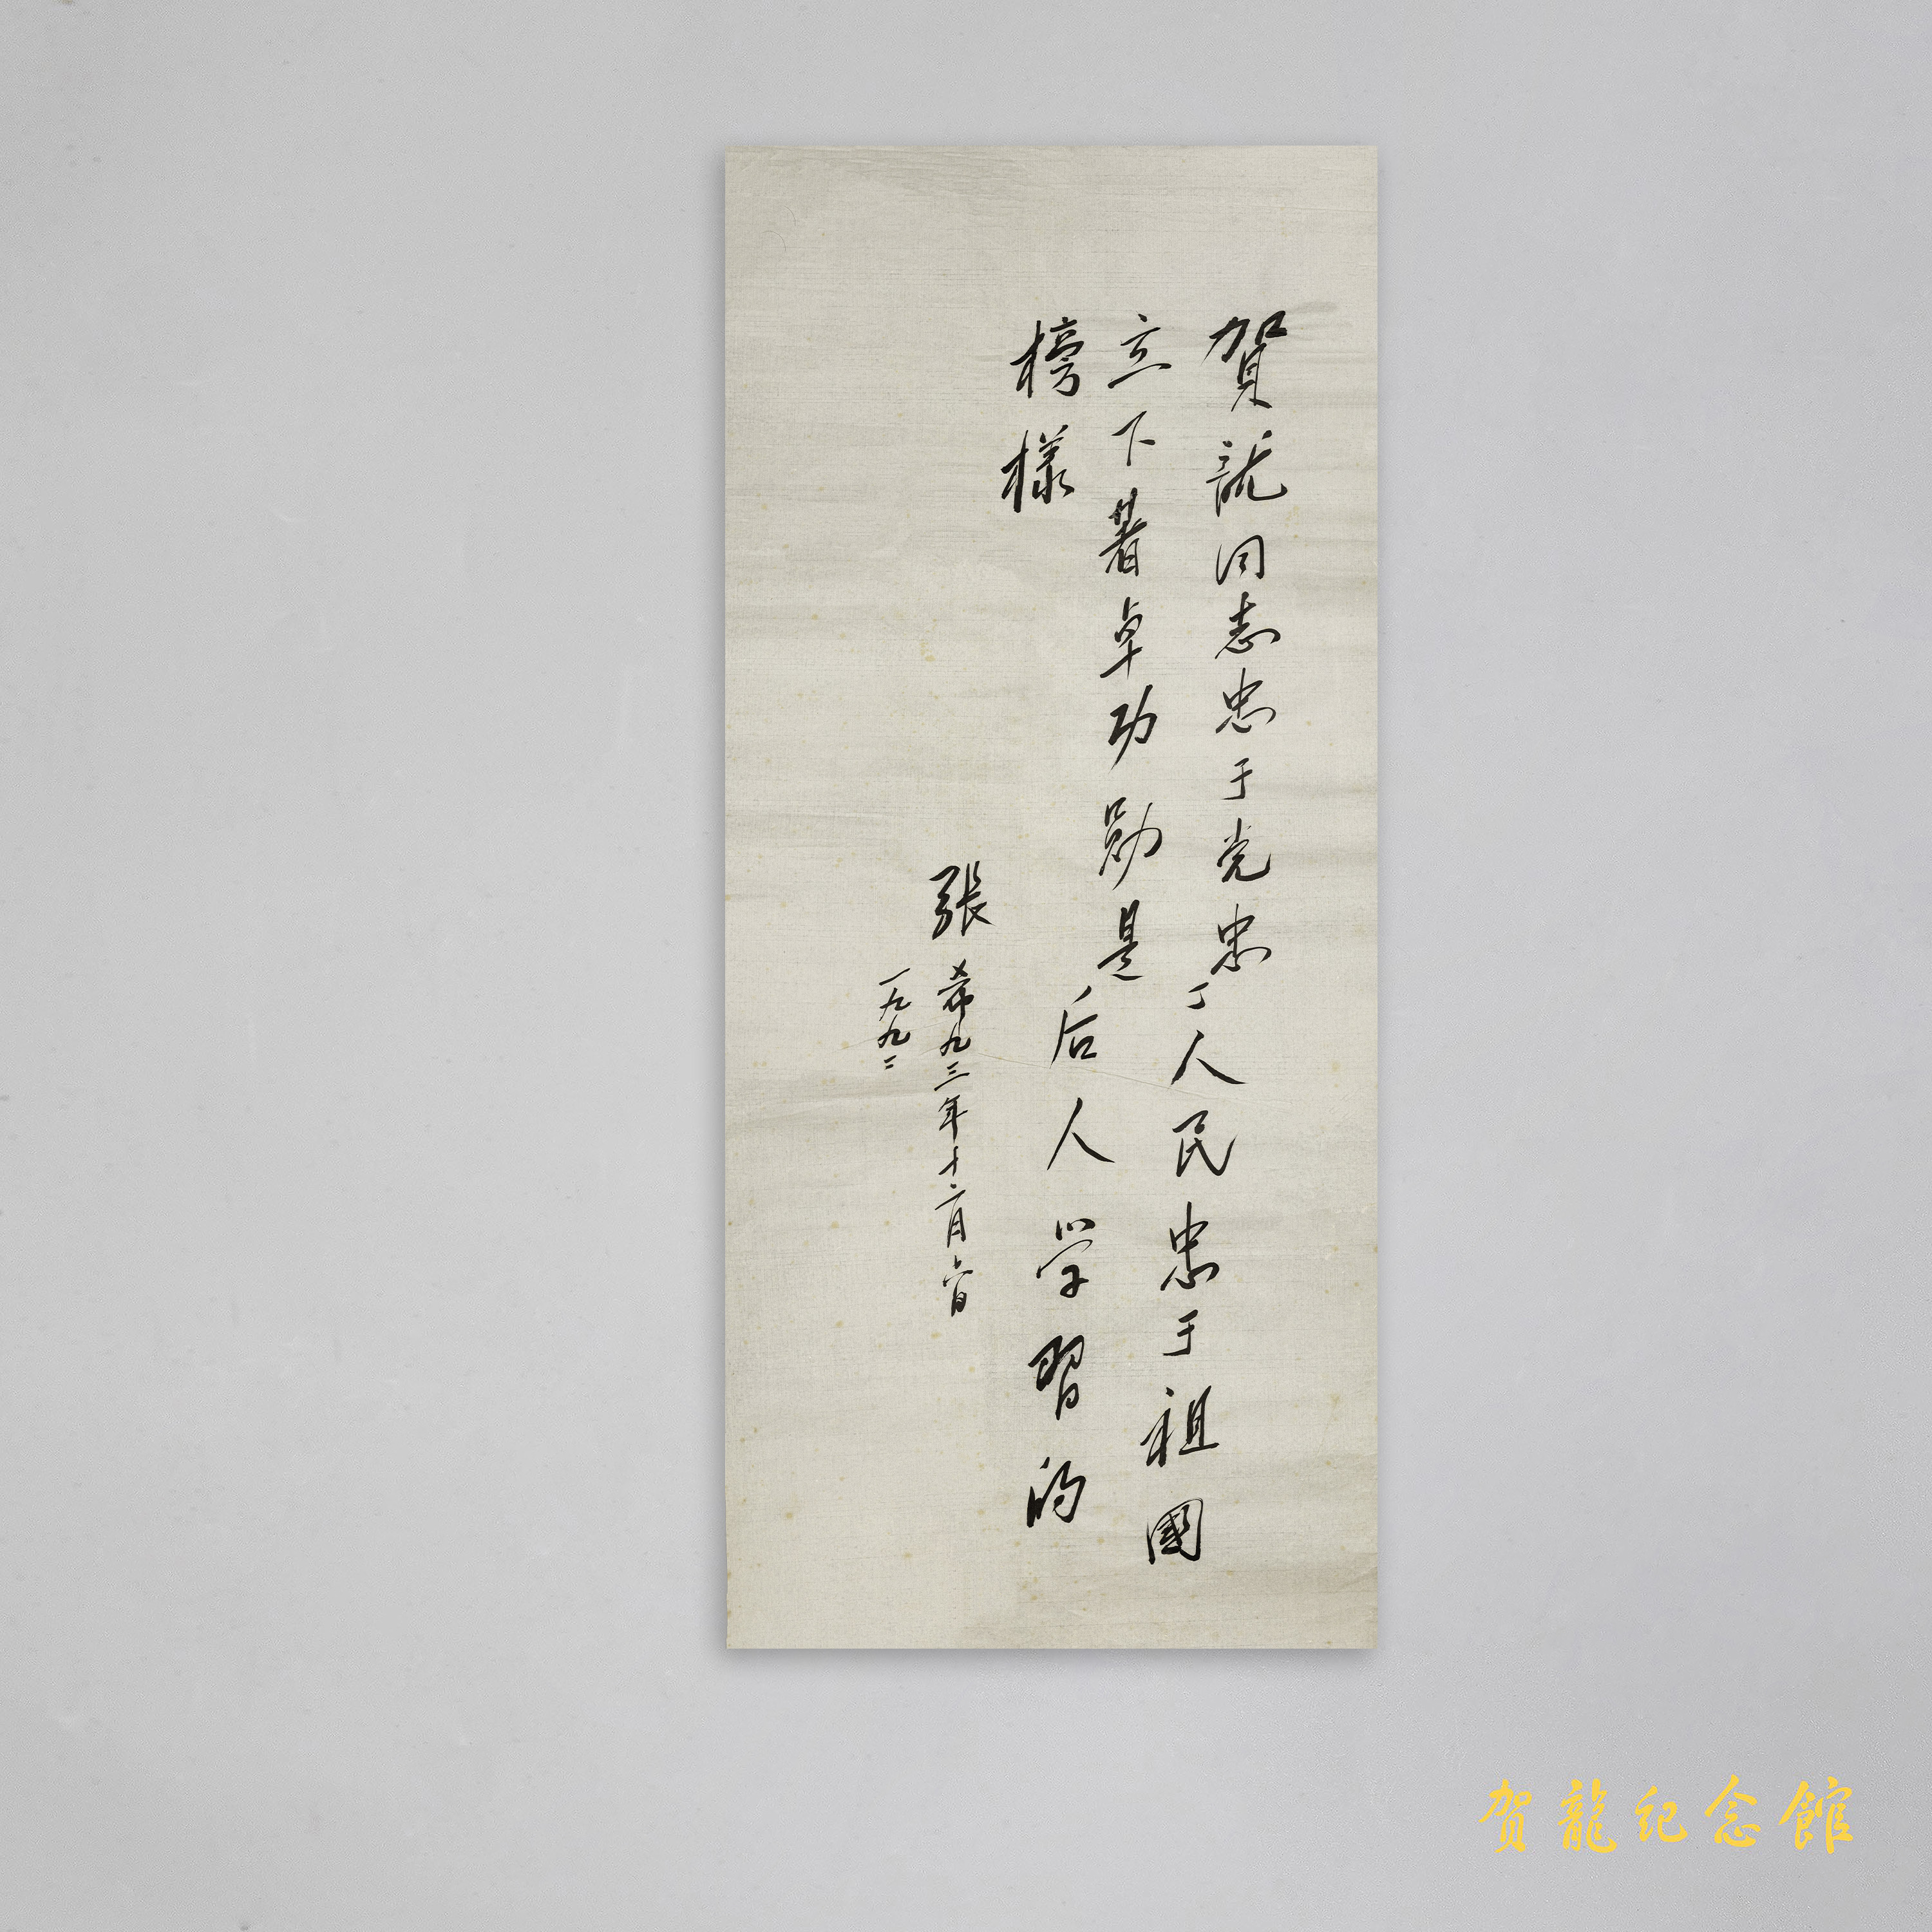 賀龙同志忠于党忠于人民忠于祖國
立下著卓功勛是后人学習的
榜樣
張希九三年十二月
一九九二
贺龍纪念館